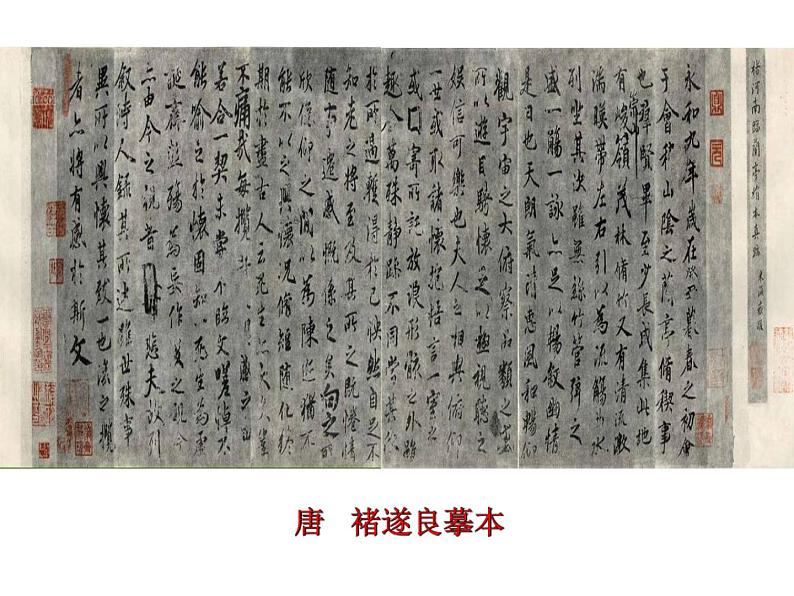 褚河南臨蘭亭絹本真跡
永和九年歲在癸丑暮春之初會
于會稽山陰之蘭亭脩稧事
也羣賢畢至少長咸集此地
有崇山峻嶺茂林脩竹又有清流激
湍暎帶左右引以為流觴曲水
列坐其次雖無絲竹管弦之
盛一觴一詠亦足以暢敘幽情
是日也天朗氣清惠風和暢仰
觀宇宙之大俯察品類之盛
所以遊目騁懷足以極視聽之
娛信可樂也夫人之相與俯仰
一世或取諸懷抱悟言一室之
或寄所託放浪形骸之外雖
趣舍萬殊靜躁不同當其欣
於所遇蹔得於己怏然自足不
知老之將至及其所之既惓情
隨事遷感慨係之矣向之所
欣俛仰之閒以為陳迹猶不
能不以之興懷況脩短隨化終
期於盡古人云死生亦大矣豈
不痛哉每攬昔感之由
若合一契未嘗不臨文嗟悼不
能喻之於懷固知一死生為虛
誕齊彭殤為妄作後之視今
亦由今之視昔悲夫故列
敘時人錄其所述雖世殊事
異所以興懷其致一也後之攬
者亦將有感於斯文
唐 褚遂良摹本